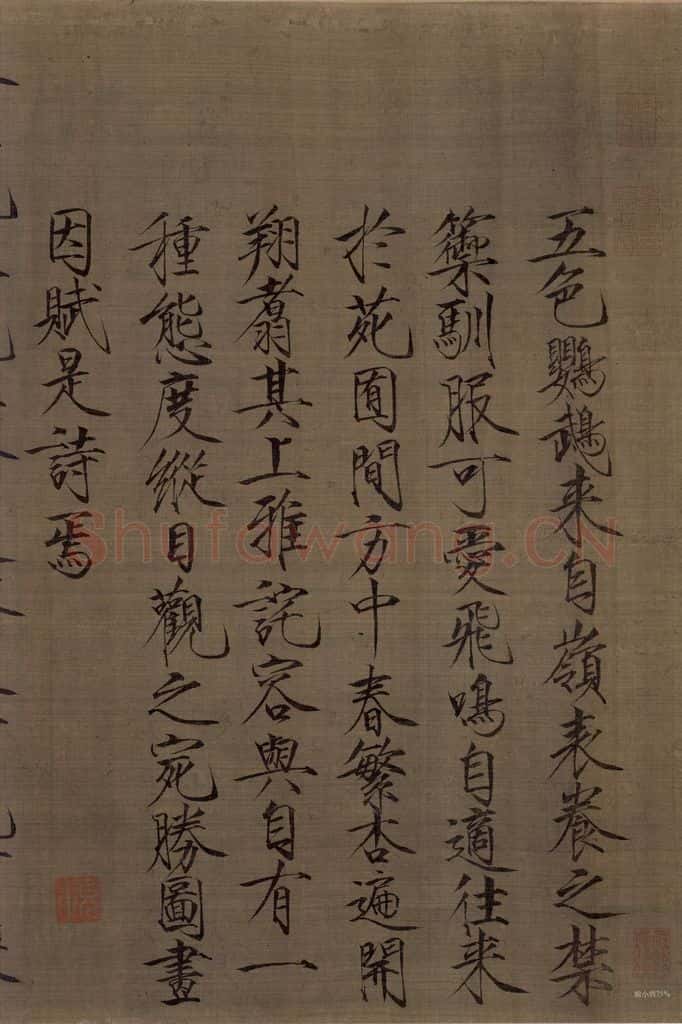 五色鸚鵡来自嶺表養之禁
籞馴服可愛飛鳴自適往来
於苑囿間方中春繁杏遍開
翔翥其上雅詫容與自有一
種態度縱目觀之宛勝圖畫
因賦是詩焉
Shufawang.CN